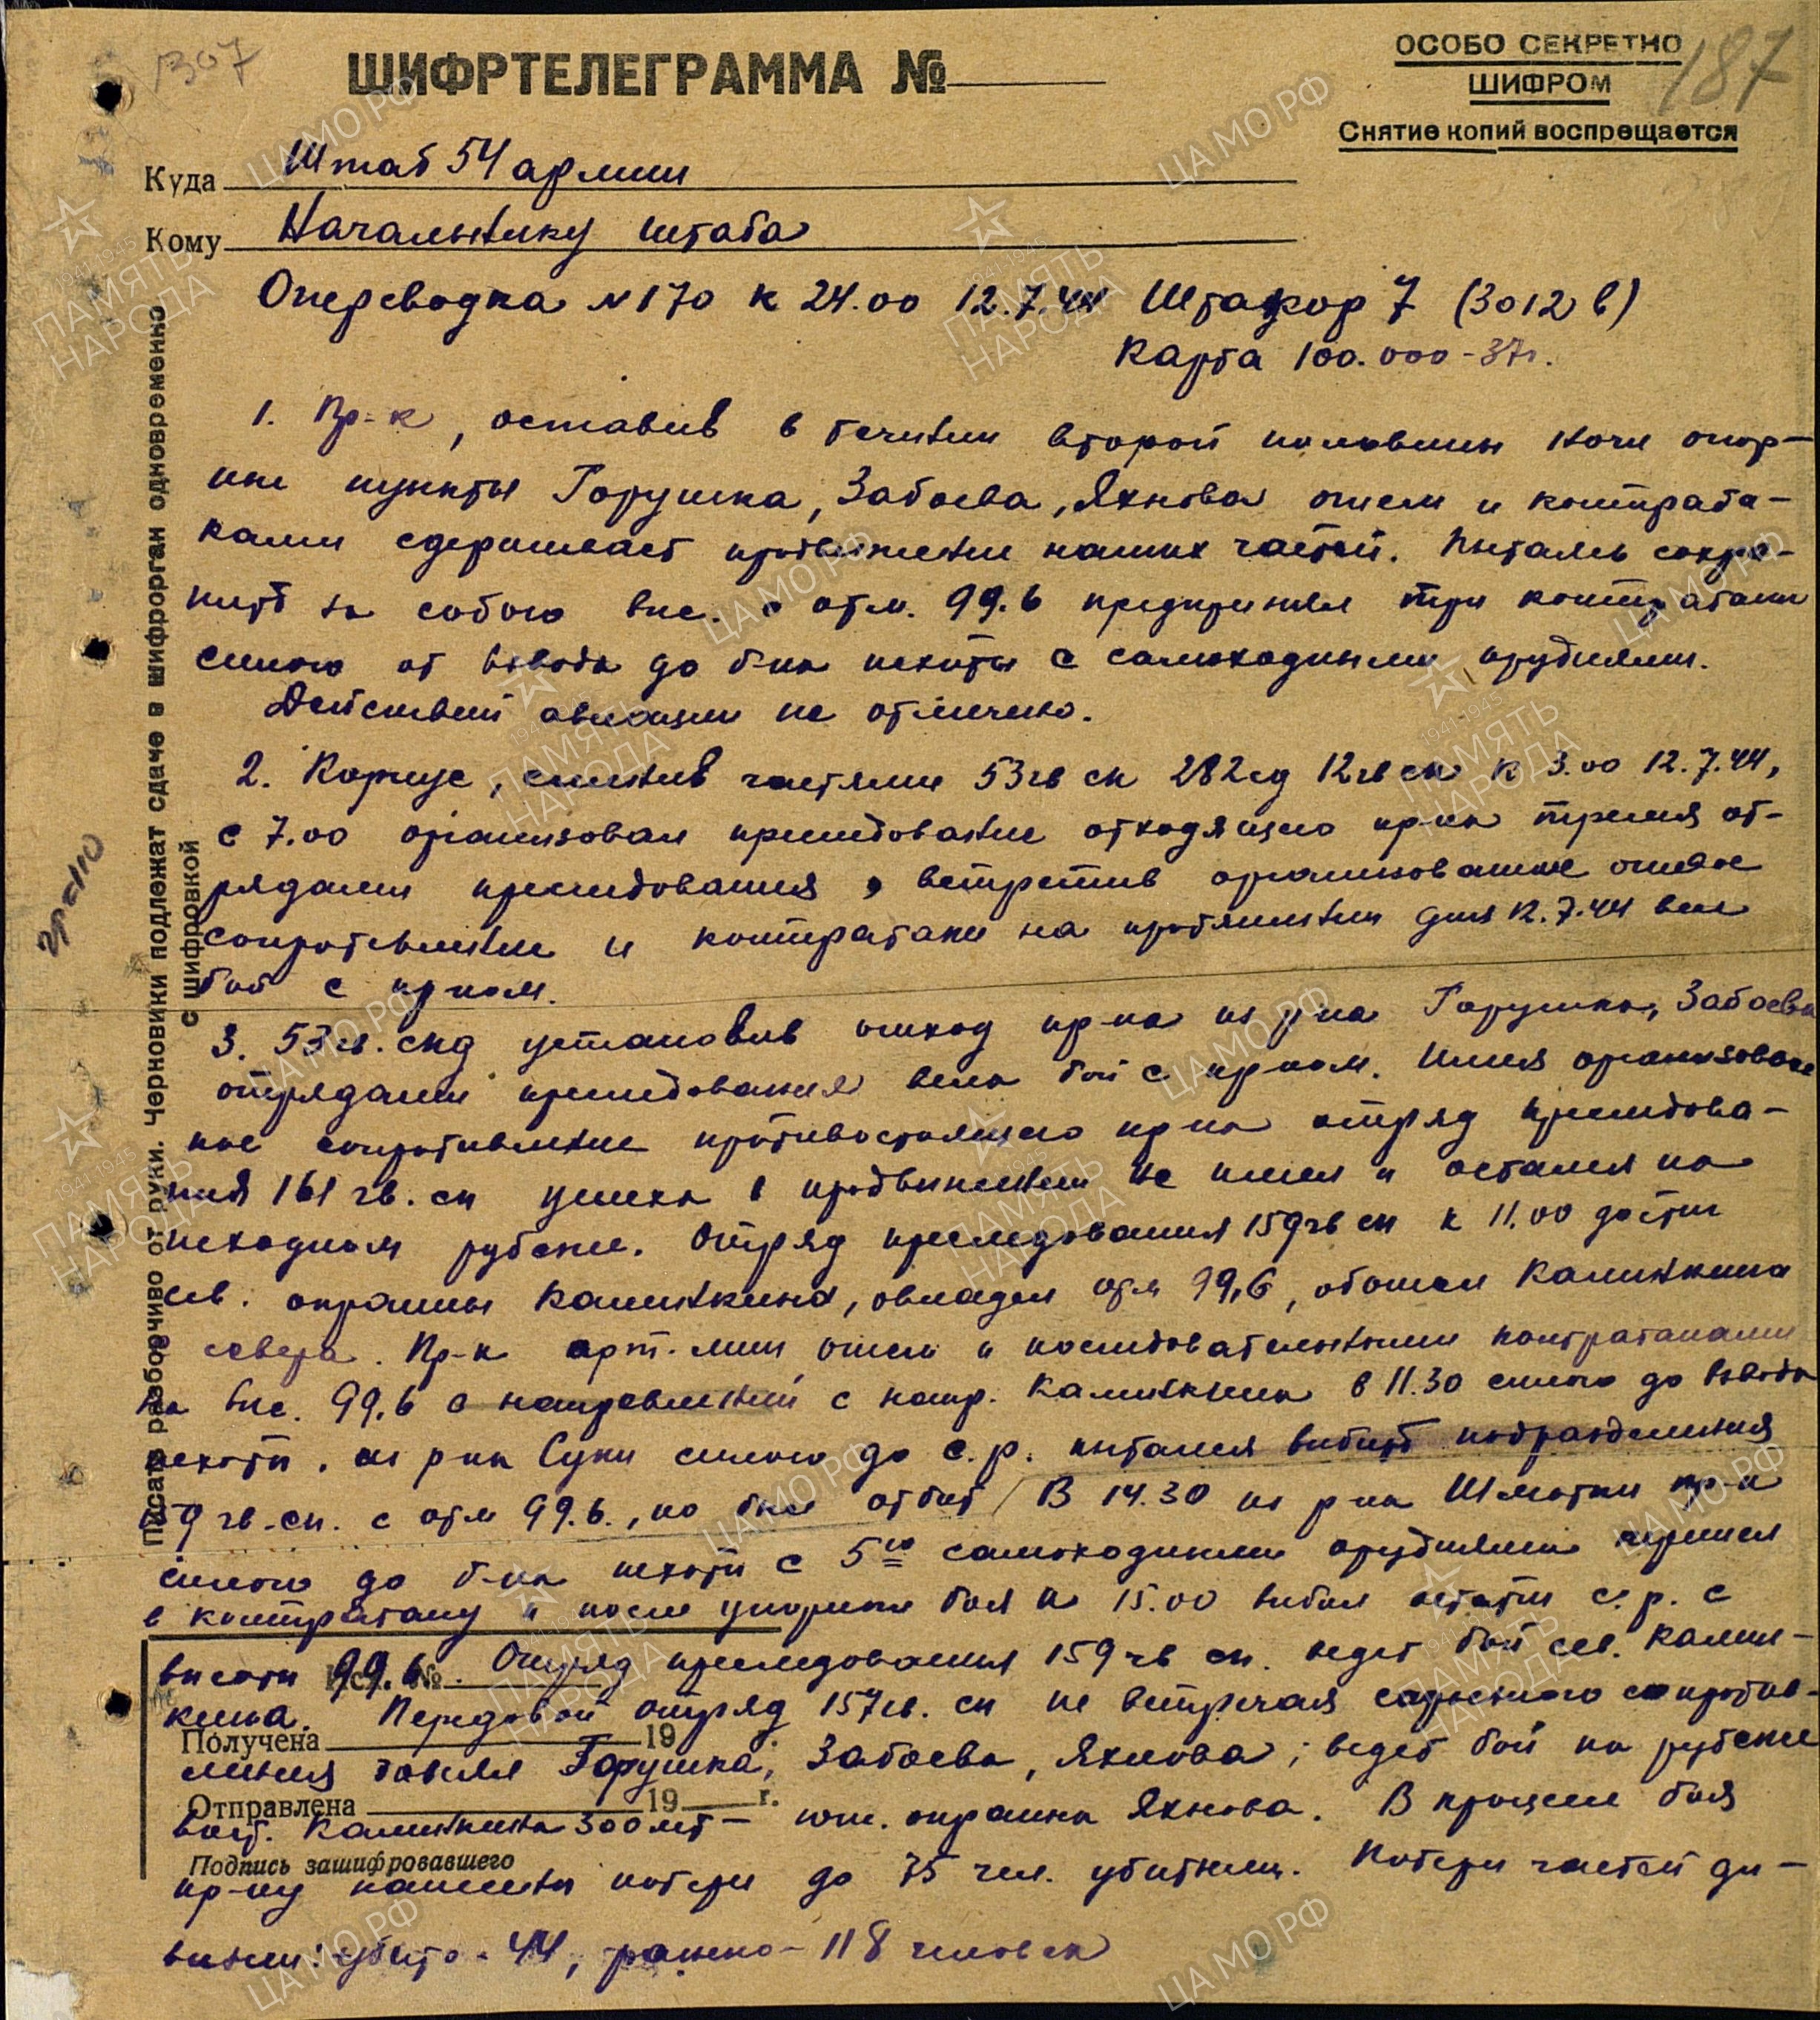 1307
ШИФРТЕЛЕГРАММА №
ОСОБО СЕКРЕТНО
187
ШИФРОМ
Снятие копий воспрещается
Куда Штаб 54 армии
Кому Начальнику штаба
Оперсводка №170 к 24.00 12.7.44 Штакор 7 (3012 в)
Карта 100.000-37г.
1. Пр-к, оставив в течении второй половины ночи опор-
ные пункты Горушка, Забоева, Яхнова огнем и контрата-
ками сдерживает продвижение наших частей. Пытаясь сохра-
нить за собою выс. с отм. 99.6 предпринял три контратаки
силою от взвода до б-на пехоты с самоходными орудиями.
Действий авиации не отмечено.
2. Корпус, сменив частями 53гв ск 282сд 12гв ск к 3.00 12.7.44,
с 7.00 организовал преследование отходящего пр-ка тремя от-
рядами преследования, встретив организованное огневое
сопротивление и контратаки на протяжении дня 12.7.44 вел
бой с пр-ком.
3. 53 гв. сид установив отход пр-ка из р-на Горушка, Забоева
отрядами преследования вела бой с пр-ком. Имея организован
ное сопротивление противостоящего пр-ка отряд преследова-
ния 161 гв. сп успеха в продвижении не имел и остался на
исходном рубеже. Отряд преследования 159гв сп к 11.00 достиг
сев. окраины Калинкина, овладел отм 99,6, обошел Калинкина
с севера. Пр-к арт.-мин огнем и последовательными контратаками
на выс. 99,6 с направлений с напр. Калинкина в 11.30 силою до взвода
пехоты, из р-на Суки силою до с.р. пытался выбить подразделения
159 гв.сп. с отм 99.6., но был отбит. В 14.30 из р-на Шмотки пр-к
силою до б-на пехоты с 5ю самоходными орудиями перешел
в контратаку и после упорного боя к 15.00 выбил остатки с.р. с
высоты 99.6. Отряд преследования 159 гв сп. ведет бой сев. Калин-
Исх. №
кина. Передовой отряд 157гв. сп не встречая серьезного сопротив-
Получена 19 г.
ления занял Горушка, Забоева, Яхнова; ведет бой на рубеже
Отправлена 19 г.
вост. Калинкина 300 мт - юж. окраина Яхнова. В процессе боя
Подпись зашифровавшего
пр-ку нанесены потери до 75 чел. убитыми. Потери частей ди-
визии: убито - 44, ранено - 118 человек
Писать разборчиво от руки. Черновики подлежат сдаче в шифрорган одновременно
с шифровкой
ЦАМО РФ
1941-1945
ПАМЯТЬ
НАРОДА